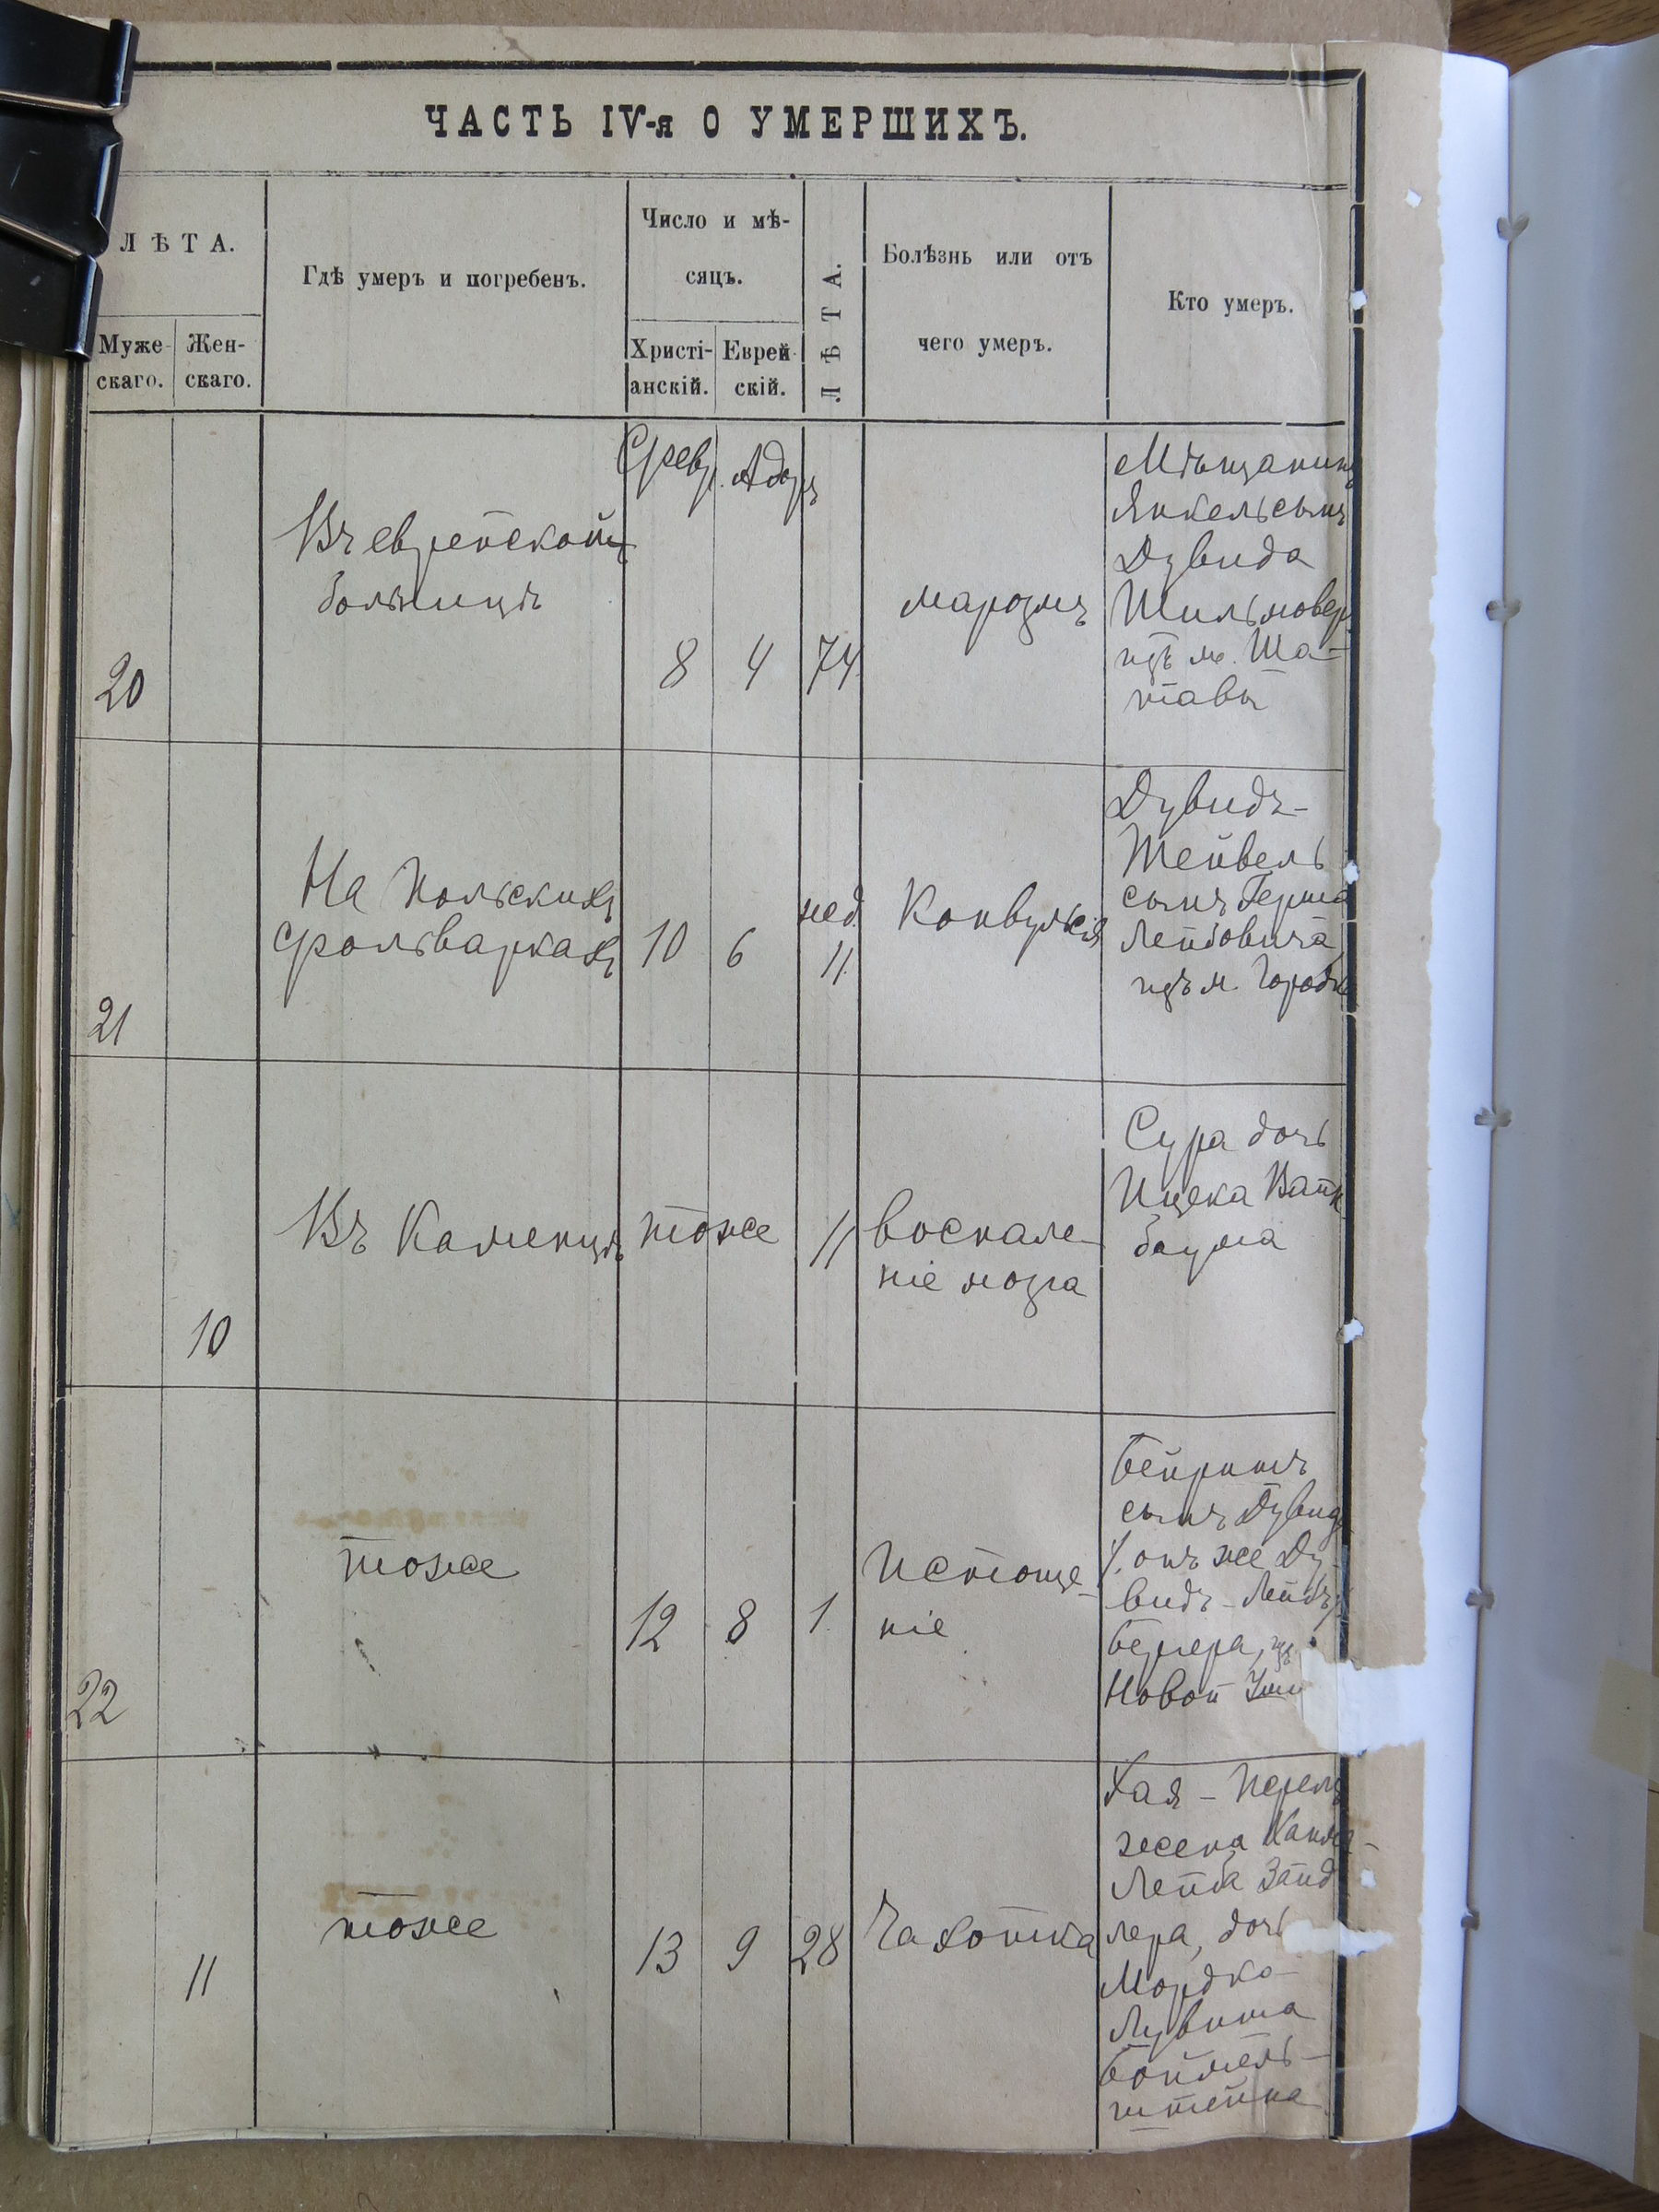 ЧАСТЬ IV-я О УМЕРШИХЪ.
ЛѢТА.
Муже-
скаго.
Жен-
скаго.
Гдѣ умеръ и погребенъ.
Число и мѣ-
сяцъ.
Христі-
анскій.
Еврей
скій.
ЛѢТА.
Болѣзнь или отъ
чего умеръ.
Кто умеръ.
20
Въ еврейской
больницѣ
Февр.
8
Адаръ
4
74
маразмъ
Мѣщанинъ
Янкель сынъ
Дувида
изъ м. Ша-
тавы
21
На Польскихъ
фольваркахъ
10
6
нед.
11
Конвульсія
Дувидъ-
Тейвель
сынъ Герша
Лейбовича
изъ м. Городка
10
Въ Каменцѣ
тоже
11
воспале-
ніе мозга
Сура дочь
Ицека Вайн
баума
22
тоже
12
8
1
Истоще-
ніе
Бейришъ
сынъ Дувида
онъ же Ду-
видъ-Лейбъ
изъ
Новой Уши
11
тоже
13
9
28
Чахотка
Хая-Перель
жена
Лейба Занд
лера, дочь
Мордко-
Боймель-
штейна